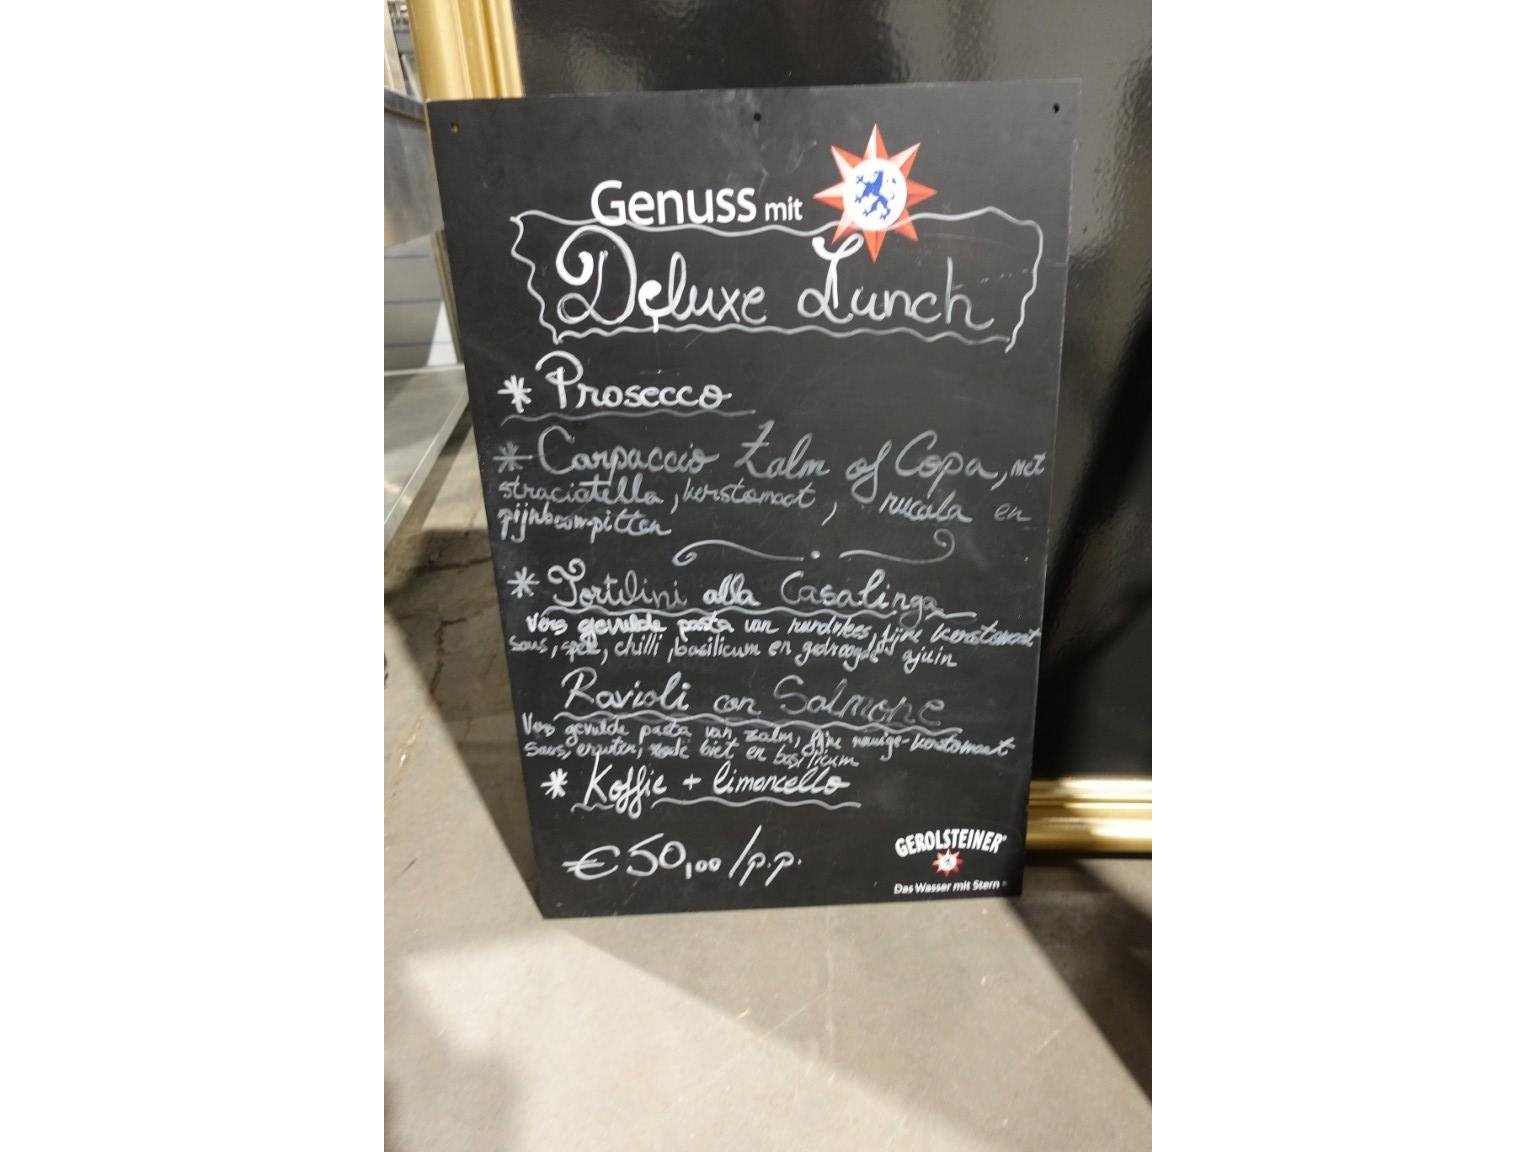 Genuss mit
Deluxe Lunch
* Prosecco
* Carpaccio Zalm of Copa, met
straciatella, kerstomaat, rucola en
pijnboompitten
* Tortilini alla Casalinga
Vers gevulde pasta van rundvlees, fijne kerstomaat
saus, spek, chilli, basilicum en gedroogde ajuin
Ravioli con Salmone
Vers gevulde pasta van zalm, fijne kerstomaat
saus, erwten, rode biet en basilicum
* Koffie + limoncello
€50,00/p.p.
GEROLSTEINER
Das Wasser mit Stern